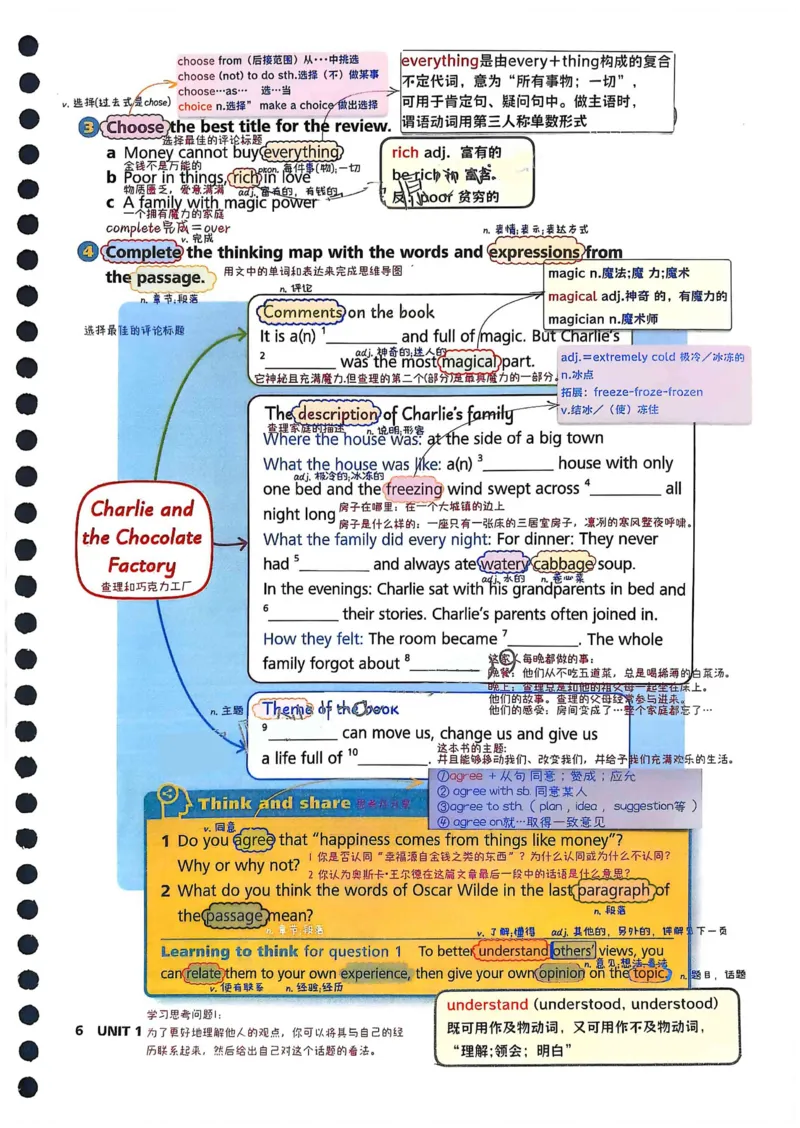 choose from（后接范围）从···中挑选
choose (not) to do sth.选择（不）做某事
choose···as··· 选···当
choice n.选择” make a choice 做出选择
everything是由every＋thing构成的复合
不定代词，意为“所有事物；一切”，
可用于肯定句、疑问句中。做主语时，
谓语动词用第三人称单数形式
v. 选择(过去式是chose)
3 Choose the best title for the review.
选择最佳的评论标题
a Money cannot buy everything
金钱不是万能的
pron. 每件事(物);一切
b Poor in things, rich in love
物质匮乏，爱意满满
adj. 富有的，有钱的
c A family with magic power
一个拥有魔力的家庭
rich adj. 富有的
poor 贫穷的
complete完成=over
v. 完成
n. 表情;表示;表达方式
4 Complete the thinking map with the words and expressions from
the passage.
用文中的单词和表达来完成思维导图
n. 章节;段落
magic n.魔法;魔 力;魔术
magical adj.神奇 的，有魔力的
magician n.魔术师
n. 评论
选择最佳的评论标题
Comments on the book
It is a(n) 1 and full of magic. But Charlie's
adj. 神奇的;迷人的
2 was the most magical part.
它神秘且充满魔力.但查理的第二个(部分)是最具魔力的一部分.
adj.＝extremely cold 极冷／冰冻的
n.冰点
拓展：freeze-froze-frozen
v.结冰／（使）冻住
The description of Charlie's family
查理家庭的描述
n. 说明;形容
Where the house was: at the side of a big town
What the house was like: a(n) 3 house with only
adj. 极冷的;冰冻的
one bed and the freezing wind swept across 4 all
night long
房子在哪里：在一个大城镇的边上
房子是什么样的：一座只有一张床的三居室房子，凛冽的寒风整夜呼啸。
What the family did every night: For dinner: They never
had 5 and always ate watery cabbage soup.
adj. 水的 n. 卷心菜
In the evenings: Charlie sat with his grandparents in bed and
6 their stories. Charlie's parents often joined in.
How they felt: The room became 7. The whole
family forgot about 8
每晚都做的事：
晚餐：他们从不吃五道菜，总是喝稀薄的白菜汤。
晚上：查理总是和他的祖父母一起坐在床上。
他们的故事。查理的父母经常参与进来。
他们的感受：房间变成了···整个家庭都忘了···
Charlie and
the Chocolate
Factory
查理和巧克力工厂
n. 主题
Theme of the book
9 can move us, change us and give us
a life full of 10.
这本书的主题：
并且能够移动我们、改变我们，并给予我们充满欢乐的生活。
①agree + 从句 同意；赞成；应允
② agree with sb. 同意某人
③agree to sth.（ plan , idea , suggestion等 ）
④ agree on就···取得一致意见
Think and share 思考与分享
v. 同意
1 Do you agree that “happiness comes from things like money”?
Why or why not?
1 你是否认同“幸福源自金钱之类的东西”？为什么认同或为什么不认同？
2 你认为奥斯卡·王尔德在这篇文章最后一段中的话语是什么意思？
2 What do you think the words of Oscar Wilde in the last paragraph of
the passage mean?
n. 段落
n. 章节;段落
v. 了解;懂得 adj. 其他的，另外的，详解见下一页
Learning to think for question 1 To better understand others' views, you
n. 意见;想法;看法
can relate them to your own experience, then give your own opinion on the topic.
v. 使有联系 n. 经验;经历
n. 题目，话题
学习思考问题1：
6 UNIT 1
为了更好地理解他人的观点，你可以将其与自己的经
历联系起来，然后给出自己对这个话题的看法。
understand (understood, understood)
既可用作及物动词，又可用作不及物动词，
“理解;领会；明白”